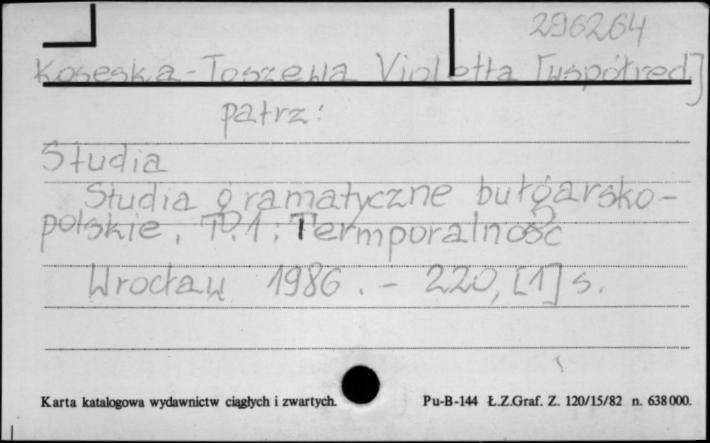 296264
Koseska-Toszewa Violetta [współred]
patrz:
Studia
Studia gramatyczne bułgarsko-
polskie, T. 1: Termporalność
Wrocław 1986. - 220, [1] s.
Karta katalogowa wydawnictw ciągłych i zwartych. Pu-B-144 Ł.Z.Graf. Z. 120/15/82 n. 638000.